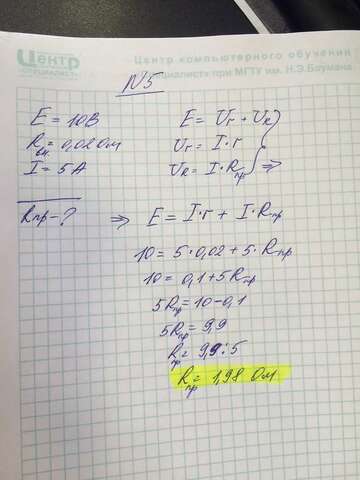 Центр
«СПЕЦИАЛИСТ»
Центр компьютерного обучения
«Специалист» при МГТУ им. Н.Э.Баумана
N5
E = 10В
Rвн. = 0,02 Ом
I = 5 А
Rпр - ?
E = Uг + UR
Uг = I·г
UR = I·Rпр ⇒
⇒ E = I·г + I·Rпр
10 = 5·0,02 + 5·Rпр
10 = 0,1 + 5Rпр
5Rпр = 10 - 0,1
5Rпр = 9,9
Rпр = 9,9 : 5
Rпр = 1,98 Ом